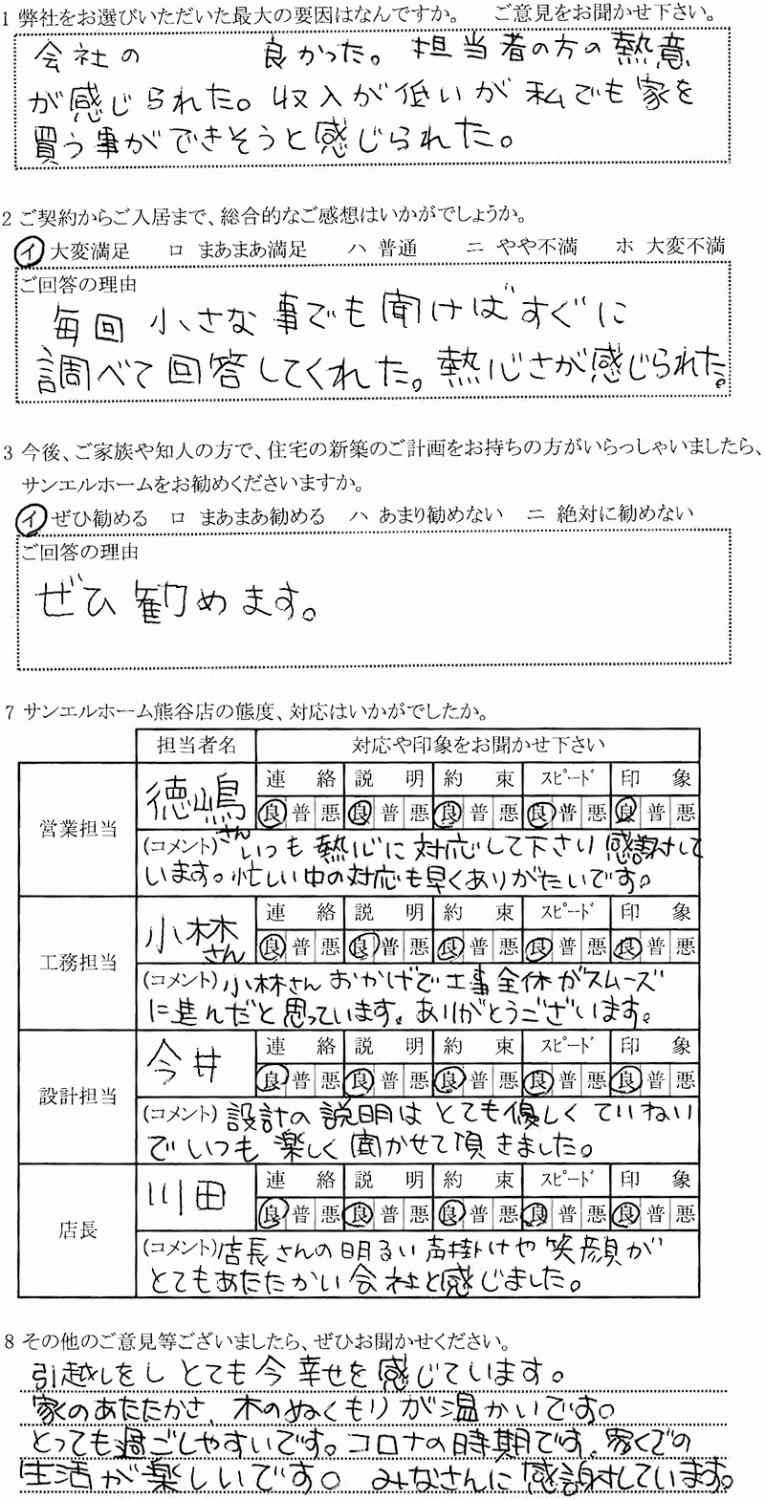 1 弊社をお選びいただいた最大の要因はなんですか。 ご意見をお聞かせ下さい。
会社の 良かった。担当者の方の熱意
が感じられた。収入が低いが私でも家を
買う事ができそうと感じられた。
2 ご契約からご入居まで、総合的なご感想はいかがでしょうか。
イ 大変満足 ロ まあまあ満足 ハ 普通 ニ やや不満 ホ 大変不満
ご回答の理由
毎回小さな事でも聞けばすぐに
調べて回答してくれた。熱心さが感じられた。
3 今後、ご家族や知人の方で、住宅の新築のご計画をお持ちの方がいらっしゃいましたら、
サンエルホームをお勧めくださいますか。
イ ぜひ勧める ロ まあまあ勧める ハ あまり勧めない ニ 絶対に勧めない
ご回答の理由
ぜひ勧めます。
7 サンエルホーム熊谷店の態度、対応はいかがでしたか。
担当者名 対応や印象をお聞かせ下さい
営業担当 徳嶋さん 連絡 説明 約束 スピード 印象
良 普 悪 良 普 悪 良 普 悪 良 普 悪 良 普 悪
(コメント) いつも熱心に対応して下さり感謝して
います。忙しい中の対応も早くありがたいです。
工務担当 小林さん 連絡 説明 約束 スピード 印象
良 普 悪 良 普 悪 良 普 悪 良 普 悪 良 普 悪
(コメント) 小林さんおかげで工事全体がスムーズ
に進んだと思っています。ありがとうございます。
設計担当 今井 連絡 説明 約束 スピード 印象
良 普 悪 良 普 悪 良 普 悪 良 普 悪 良 普 悪
(コメント) 設計の説明はとても優しくていねい
でいつも楽しく聞かせて頂きました。
店長 川田 連絡 説明 約束 スピード 印象
良 普 悪 良 普 悪 良 普 悪 良 普 悪 良 普 悪
(コメント) 店長さんの明るい声掛けや笑顔が
とてもあたたかい会社と感じました。
8 その他のご意見等ございましたら、ぜひお聞かせください。
引越しをしとても今幸せを感じています。
家のあたたかさ、木のぬくもりが温かいです。
とっても過ごしやすいです。コロナの時期です、家での
生活が楽しいです。みなさんに感謝しています。